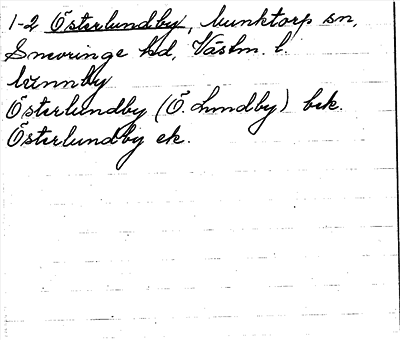 1-2 Österlundby, Munktorp sn,
Snevringe hd, Västm. l.
Österlundby (Ö. Lundby) bek.
Österlundby ek.